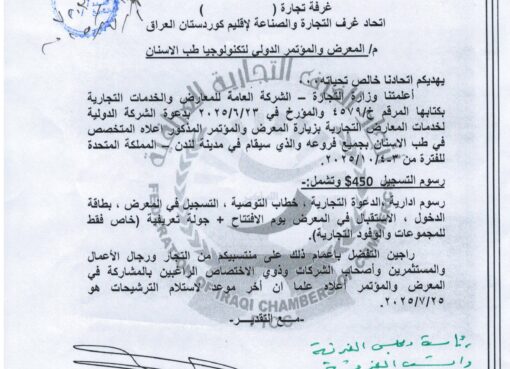 غرفة تجارة ( )
اتحاد غرف التجارة والصناعة لإقليم كوردستان العراق
م/ المعرض والمؤتمر الدولي لتكنولوجيا طب الاسنان
يهديكم إتحادنا خالص تحياته..
أعلمتنا وزارة التجارة – الشركة العامة للمعارض والخدمات التجارية
بكتابها المرقم خ/٤٥٧٩ والمؤرخ في ٢٠٢٥/٦/٢٣ بدعوة الشركة الدولية
لخدمات المعارض التجارية بزيارة المعرض والمؤتمر المذكور أعلاه المتخصص
في طب الاسنان بجميع فروعه والذي سيقام في مدينة لندن – المملكة المتحدة
للفترة من ٣-٢٠٢٥/١٠/٤.
رسوم التسجيل 450$ وتشمل:-
رسوم ادارية، الدعوة التجارية ، خطاب التوصية ، التسجيل في المعرض ، بطاقة
الدخول ، الاستقبال في المعرض يوم الافتتاح + جولة تعريفية (خاص فقط
للمجموعات والوفود التجارية).
راجين التفضل بأعمام ذلك على منتسبيكم من التجار ورجال الأعمال
والمستثمرين وأصحاب الشركات وذوي الاختصاص الراغبين بالمشاركة في
المعرض والمؤتمر أعلاه علما ان أخر موعد لاستلام الترشيحات هو
٢٠٢٥/٧/٢٥.
-مع التقدير-
رئاسة مجلس الغرفة
IRAQI CHAMBERS OF